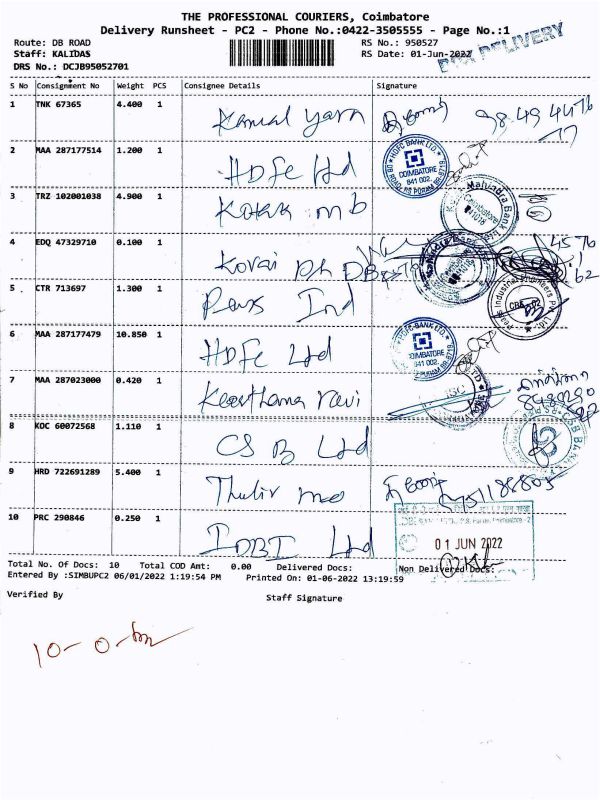 THE PROFESSIONAL COURIERS, Coimbatore
Delivery Runsheet - PC2 - Phone No.:0422-3505555 - Page No.:1
Route: DB ROAD RS No.: 950527
Staff: KALIDAS RS Date: 01-Jun-2022
DRS No.: DCJB95052701
DELIVERY
S No Consignment No Weight PCS Consignee Details Signature
1 TNK 67365 4.400 1 Kamal yarn
2 MAA 287177514 1.200 1 HDFC Ltd
HDFC BANK LTD.
COIMBATORE
641 002.
3 TRZ 102001038 4.900 1 Kotak mb
Mahindra Bank
Coimbatore
4 EDQ 47329710 0.100 1 Kovai
5 CTR 713697 1.300 1 Ind
6 MAA 287177479 10.850 1 HDFC Ltd
HDFC BANK LTD.
COIMBATORE
7 MAA 287023000 0.420 1 Keerthana ravi
8 KDC 60072568 1.110 1 CSB Ltd
9 HRD 722691289 5.400 1
10 PRC 290846 0.250 1 IDBI Ltd
01 JUN 2022
Total No. Of Docs: 10 Total COD Amt: 0.00 Delivered Docs: Non Delivered Docs:
Entered By :SIMBUPC2 06/01/2022 1:19:54 PM Printed On: 01-06-2022 13:19:59
Verified By Staff Signature